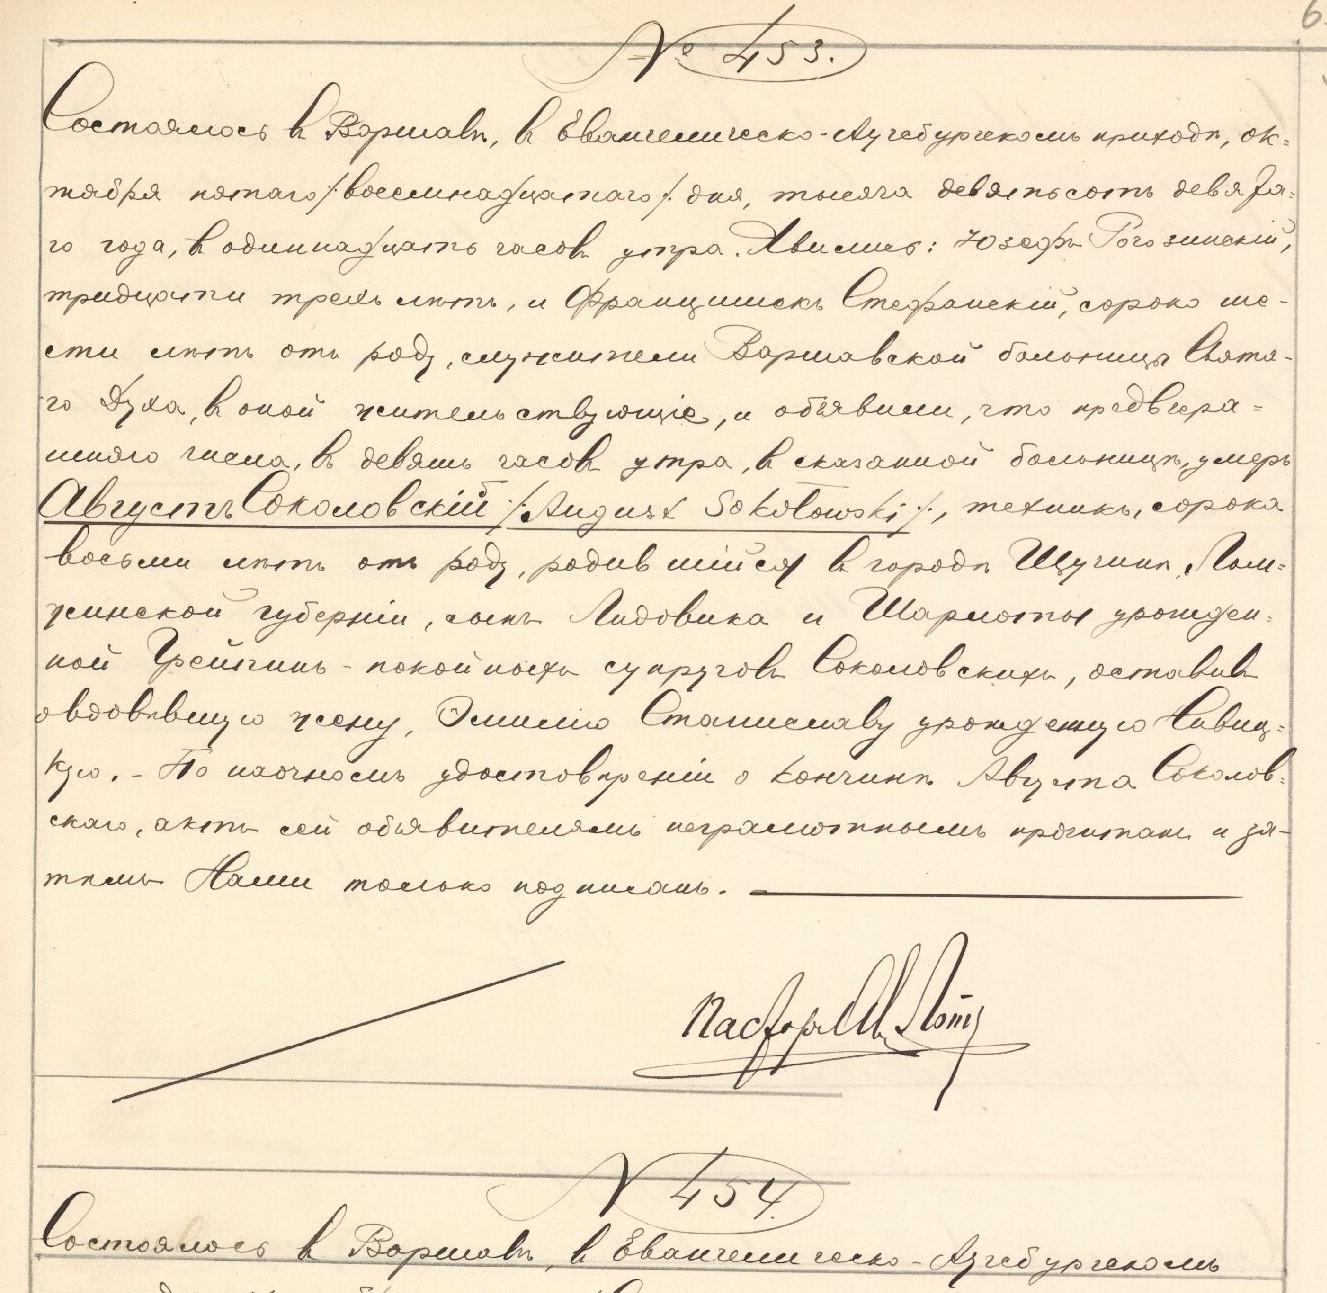 № 453.
Состоялось въ Варшавѣ, въ Евангелическо-Аугсбургскомъ приходѣ, ок-
тября пятаго /:восемнадцатаго:/ дня, тысяча девятьсотъ девята-
го года, въ одиннадцать часовъ утра. Явились: Юзефъ Рогозинскій,
тридцати трехъ лѣтъ, и Францишекъ Стефанскій, сорока ше-
сти лѣтъ отъ роду, служители Варшавской больницы Свята-
го Духа, въ оной жительствующіе, и объявили, что предвчера-
шняго числа, въ девять часовъ утра, въ сказанной больницѣ, умеръ
Августъ Соколовскій /:August Sokołowski:/, техникъ, сорока
восьми лѣтъ отъ роду, родившійся въ городѣ Щучинѣ, Лом-
жинской губерніи, сынъ Людовика и Шарлоты урожден-
ной - покойныхъ супруговъ Соколовскихъ, оставивъ
овдовѣвшую жену, Эмилію Станиславу урожденную Нивиц-
кую. - По наочномъ удостовѣреніи о кончинѣ Августа Соколов-
скаго, актъ сей объявителямъ неграмотнымъ прочитанъ и за-
тѣмъ Нами только подписанъ.
Пасторъ
№ 454.
Состоялось въ Варшавѣ, въ Евангелическо-Аугсбургскомъ